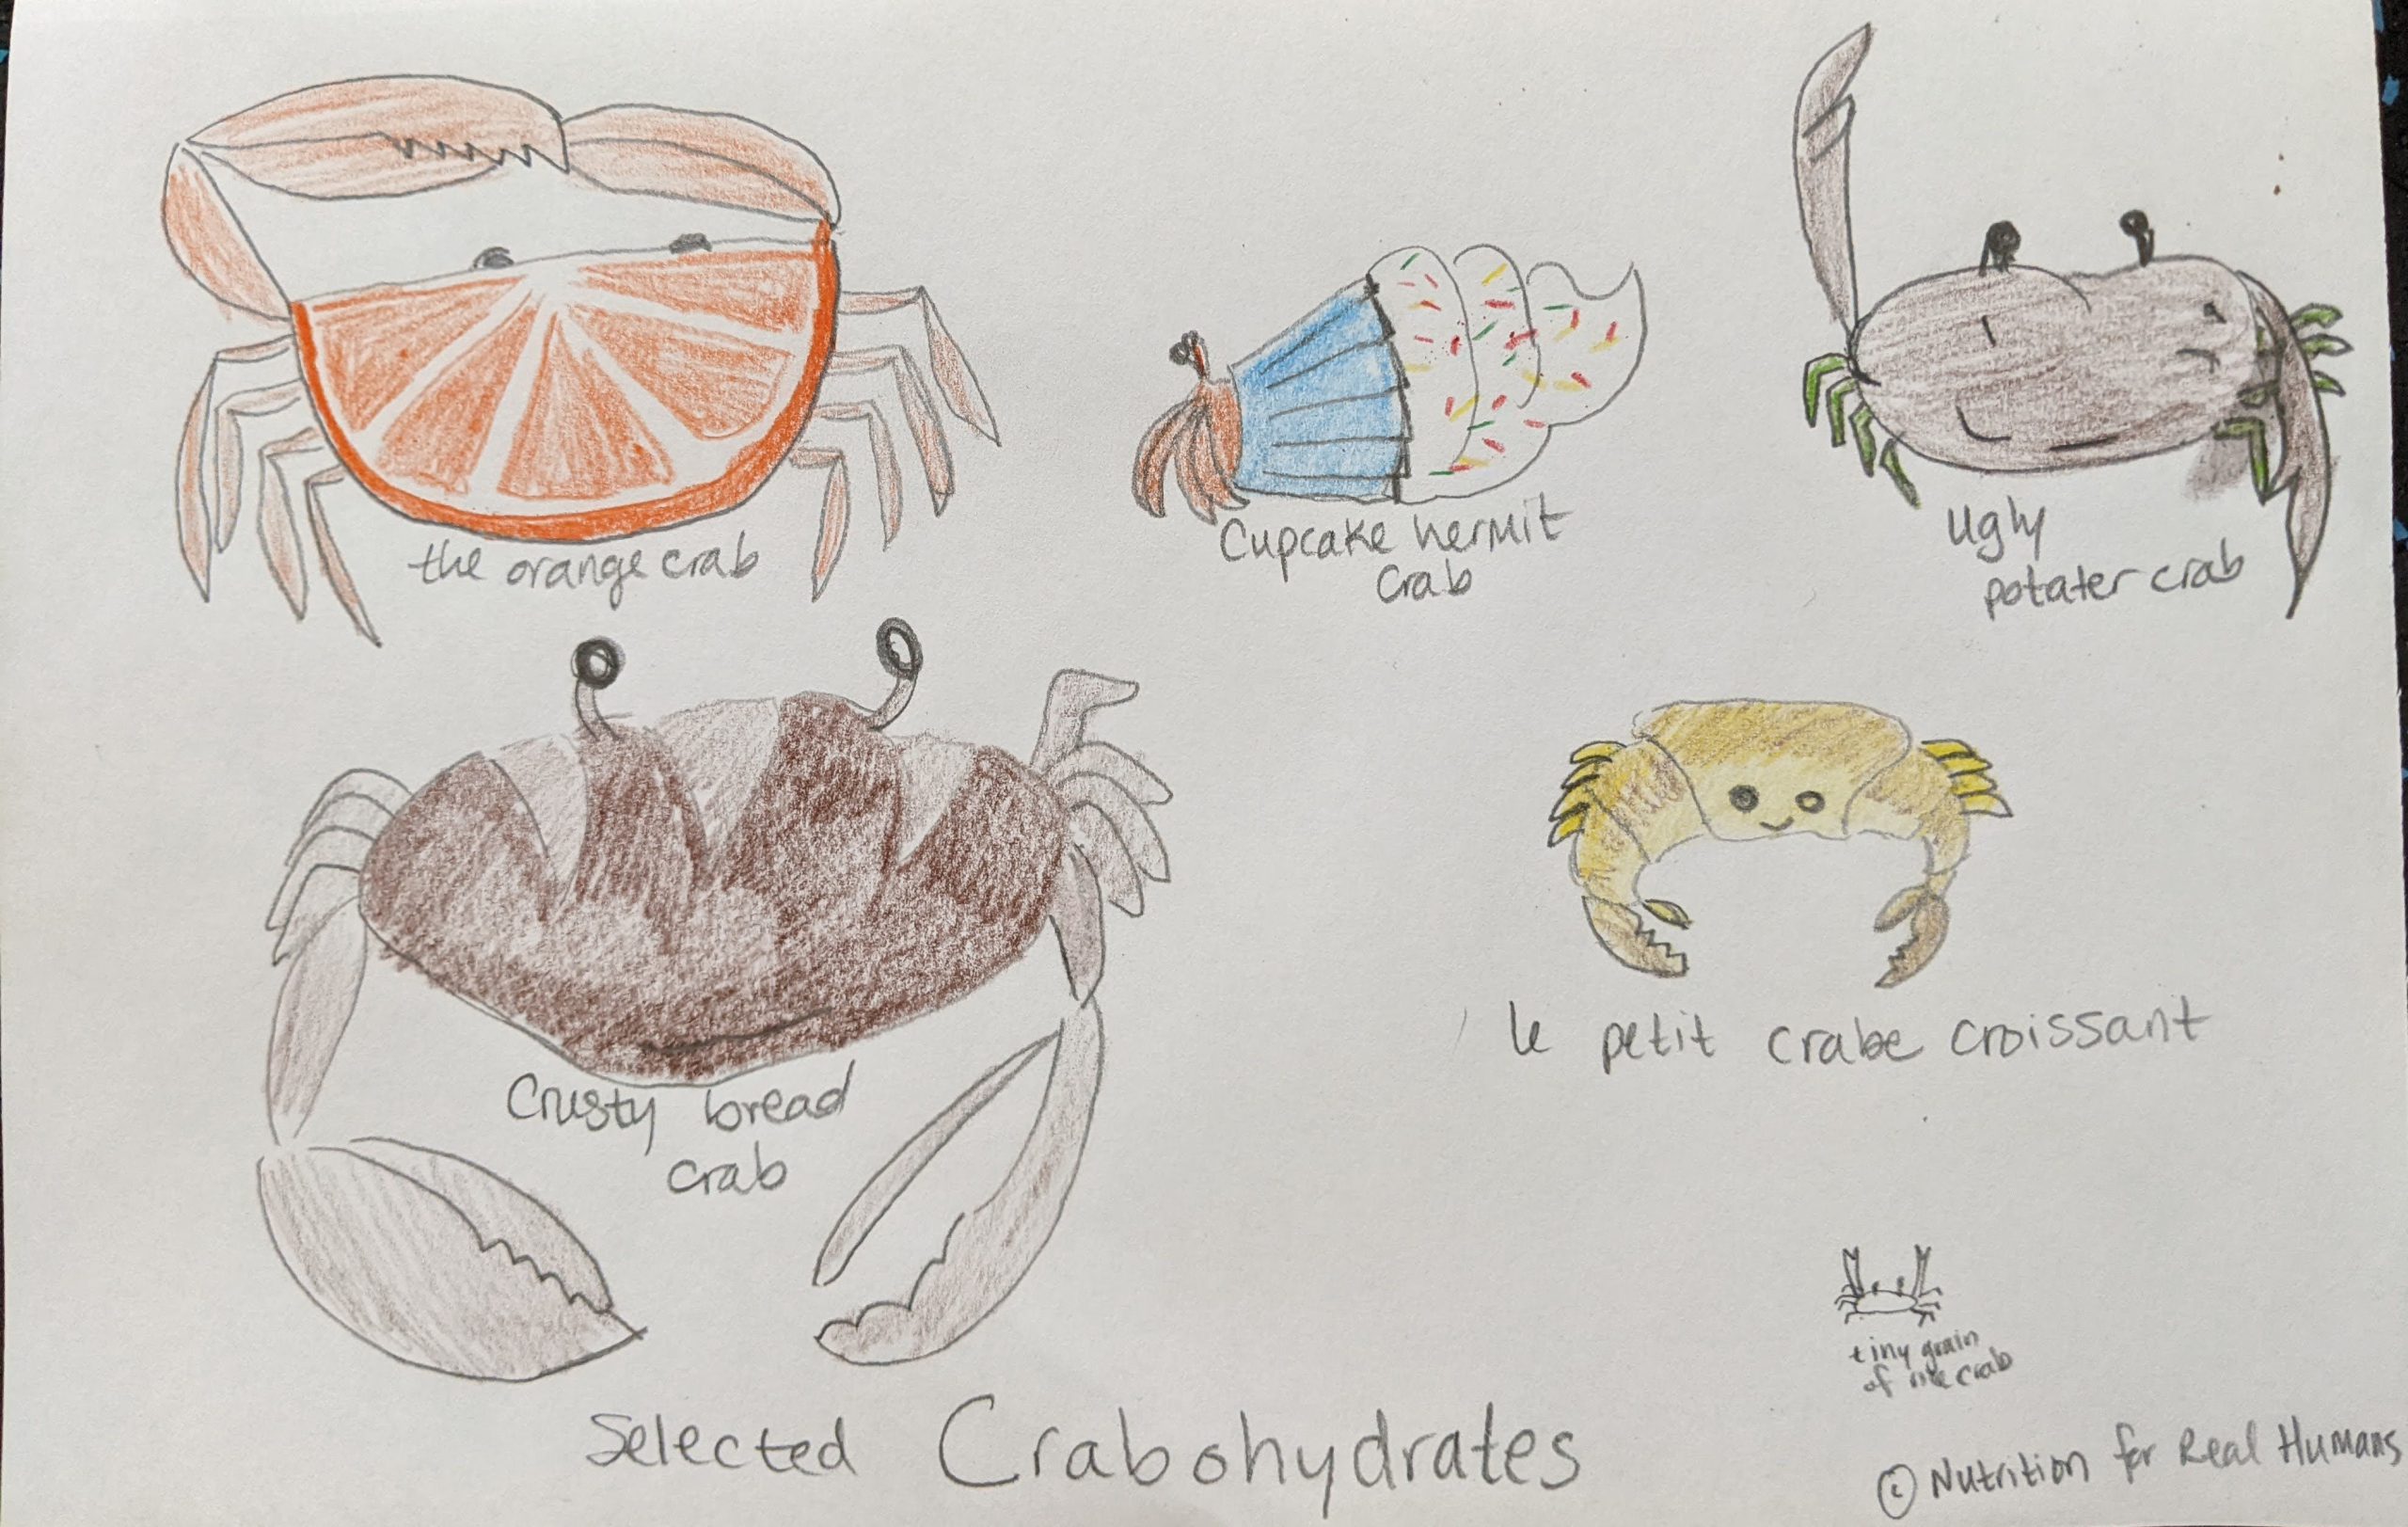 the orange crab
Cupcake hermit
Crab
ugly
potater crab
Crusty bread
crab
le petit crabe croissant
tiny grain
of rice crab
Selected Crabohydrates
© Nutrition for Real Humans